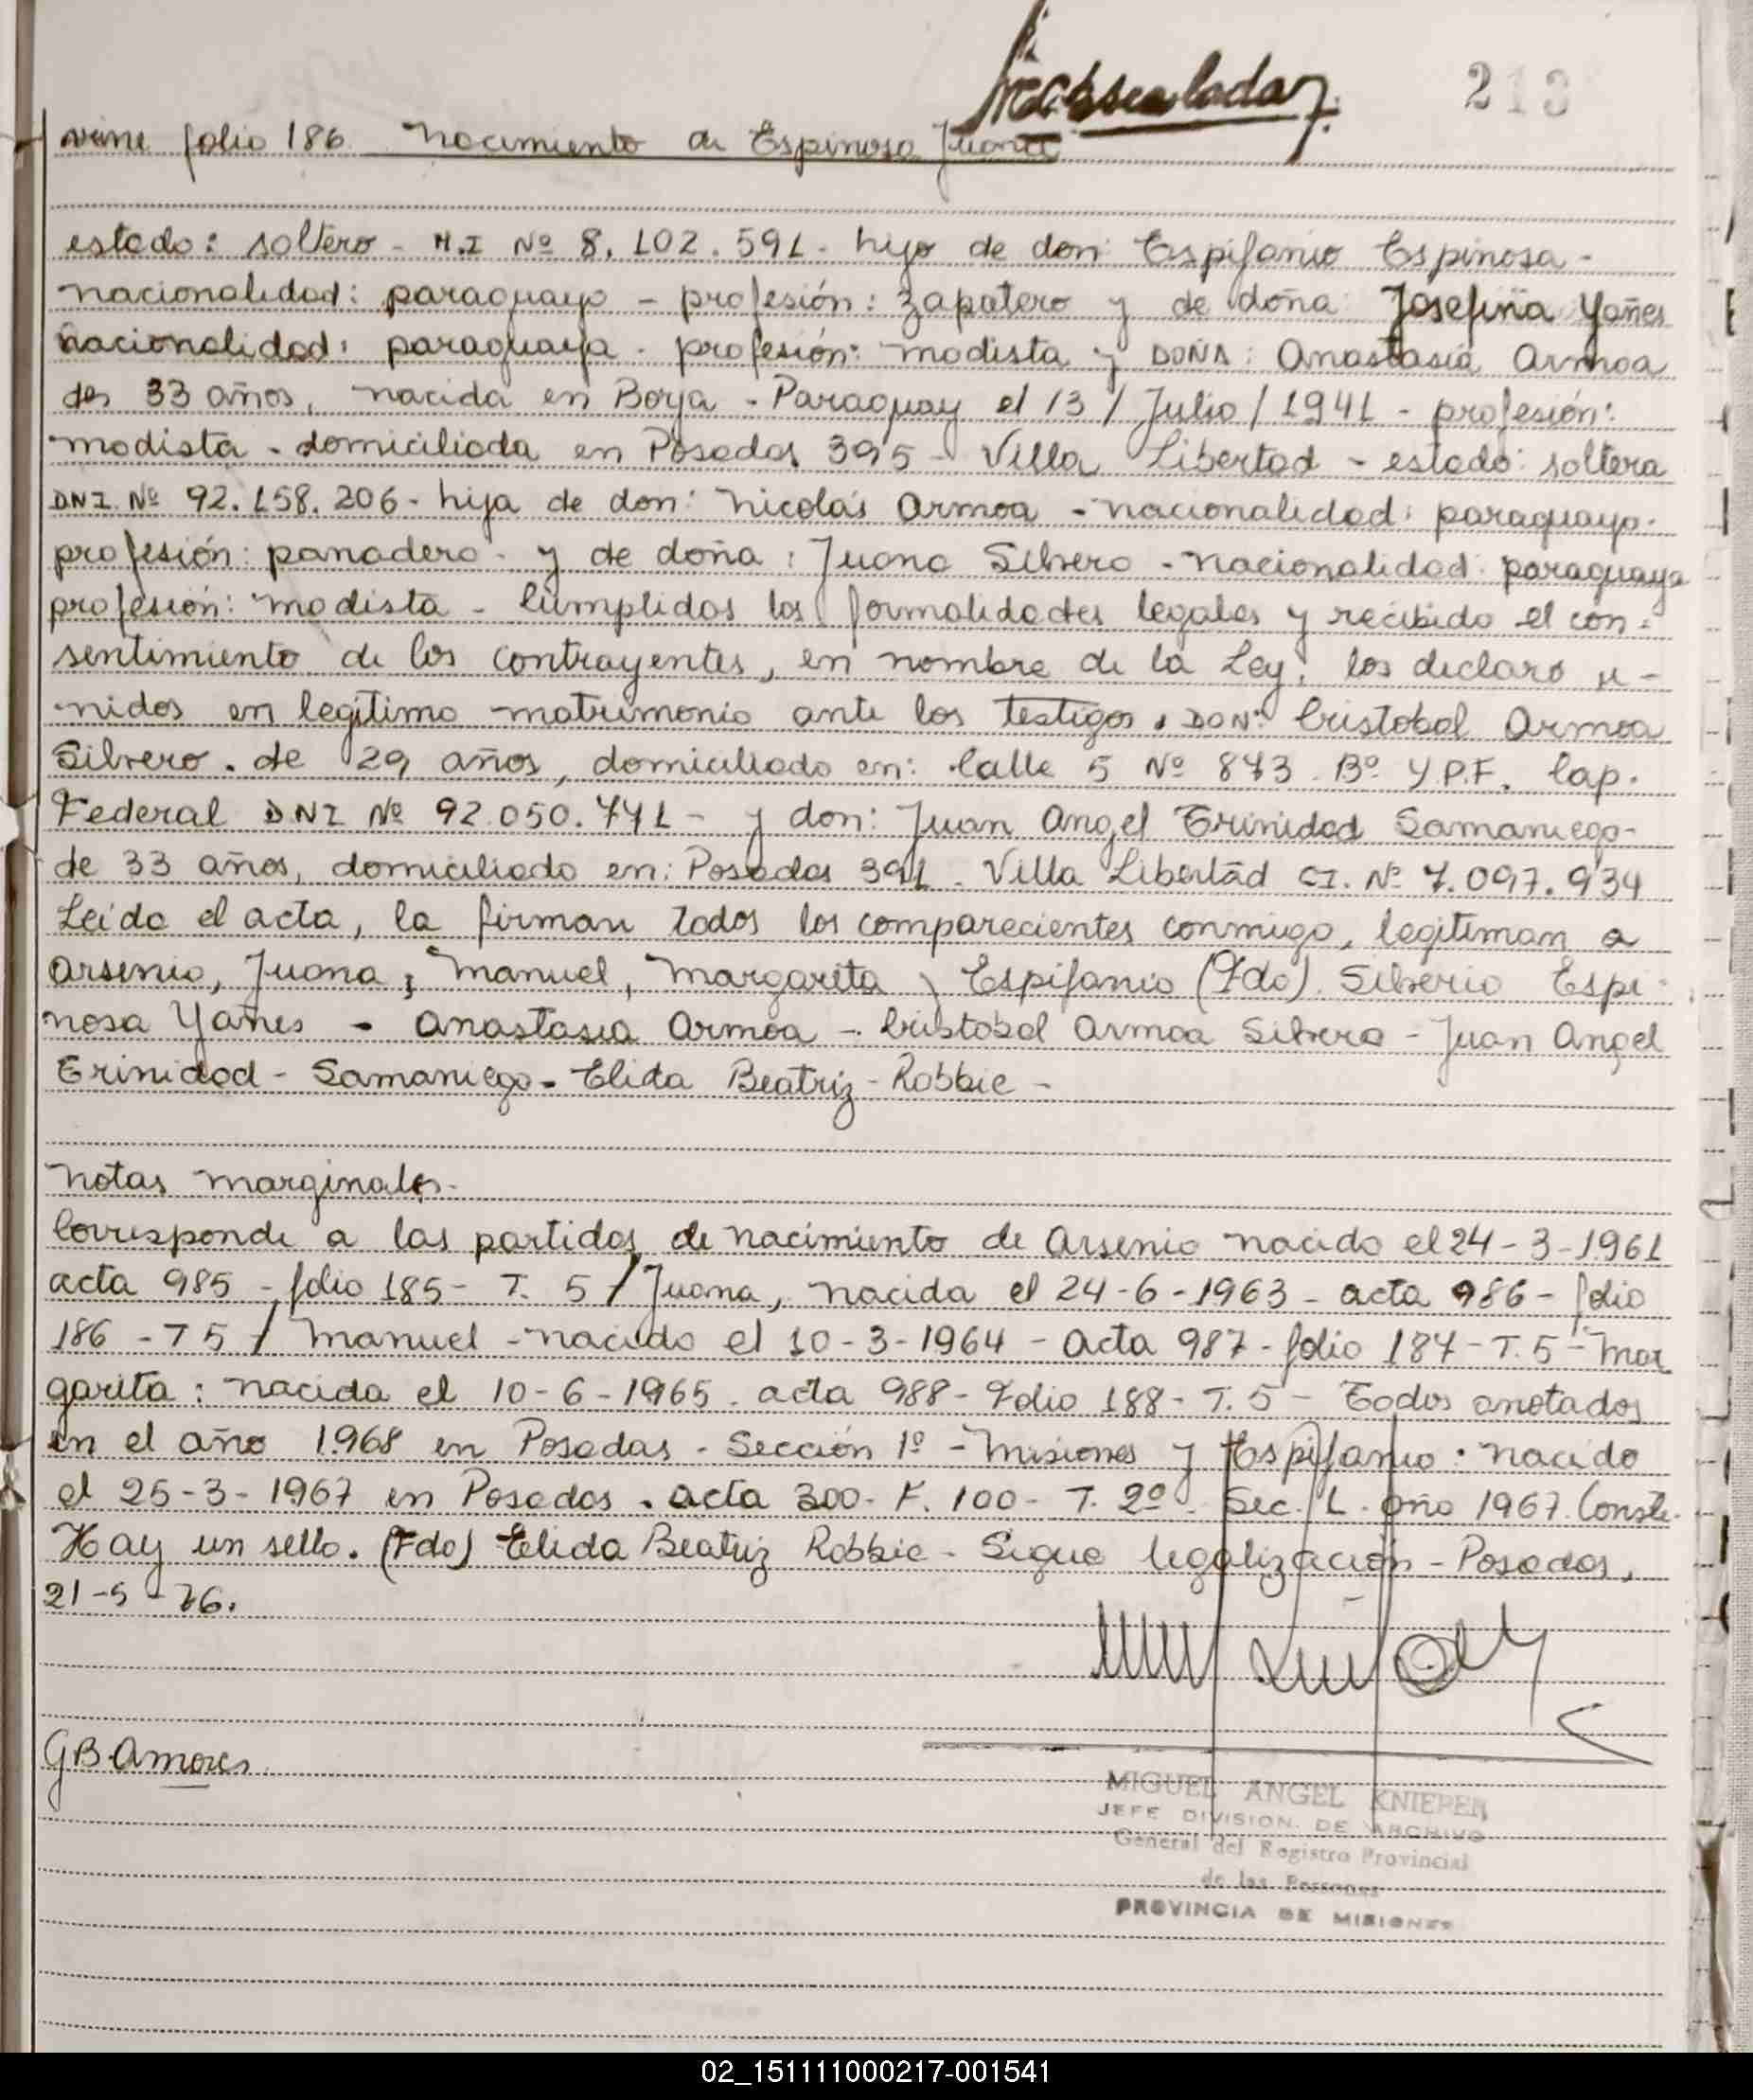 213
viene folio 186. Nacimiento de Espinosa Juana
estado: soltero - M.I Nº 8.102.591 - hijo de don: Espifanio Espinosa -
nacionalidad: paraguayo - profesión: zapatero y de doña: Josefina Yañes
nacionalidad: paraguaya - profesión: modista y DOÑA: Anastasia Armoa
de 33 años, nacida en Borja - Paraguay el 13 / Julio / 1941 - profesión:
modista - domiciliada en Posadas 395 - Villa Libertad - estado: soltera
DNI. Nº 92.158.206 - hija de don: Nicolás Armoa - nacionalidad: paraguayo.
profesión: panadero - y de doña: Juana Silvero - nacionalidad: paraguaya
profesión: modista - Cumplidas las formalidades legales y recibido el con-
sentimiento de los contrayentes, en nombre de la Ley, los declaro u-
nidos en legítimo matrimonio ante los testigos. DON: Cristobal Armoa
Silvero. de 29 años, domiciliado en: Calle 5 Nº 873. Bº Y.P.F. Cap.
Federal DNI Nº 92.050.771 - y don: Juan Angel Trinidad Samaniego-
de 33 años, domiciliado en: Posadas 391 - Villa Libertad CI. Nº 7.097.934
Leída el acta, la firman todos los comparecientes conmigo, legitiman a
Arsenio, Juana, Manuel, Margarita y Espifanio (Fdo). Silverio Espi-
nosa Yañes - Anastasia Armoa - Cristobal Armoa Silvero - Juan Angel
Trinidad - Samaniego - Elida Beatriz - Robbie -
Notas marginales.
Corresponde a las partidas de nacimiento de Arsenio nacido el 24-3-1961
acta 985 - folio 185 - T. 5 / Juana, nacida el 24-6-1963 - acta 986 - folio
186 - T 5 / Manuel - nacido el 10-3-1964 - Acta 987 - folio 187 - T. 5 - Mar
garita: nacida el 10-6-1965. acta 988 - Folio 188 - T. 5 - Todos anotados
en el año 1.968 en Posadas - Sección 1º - Misiones y Espifanio: nacido
el 25-3-1967 en Posadas. acta 300 - F. 100 - T. 2º - Sec. 1. año 1967. Conste.
Hay un sello. (Fdo) Elida Beatriz Robbie - Sigue legalización - Posadas,
21-5-76.
GB.Amores
MIGUEL ANGEL KNIEPER
JEFE DIVISION DE ARCHIVO
General del Registro Provincial
de las Personas
PROVINCIA DE MISIONES
02_151111000217-001541